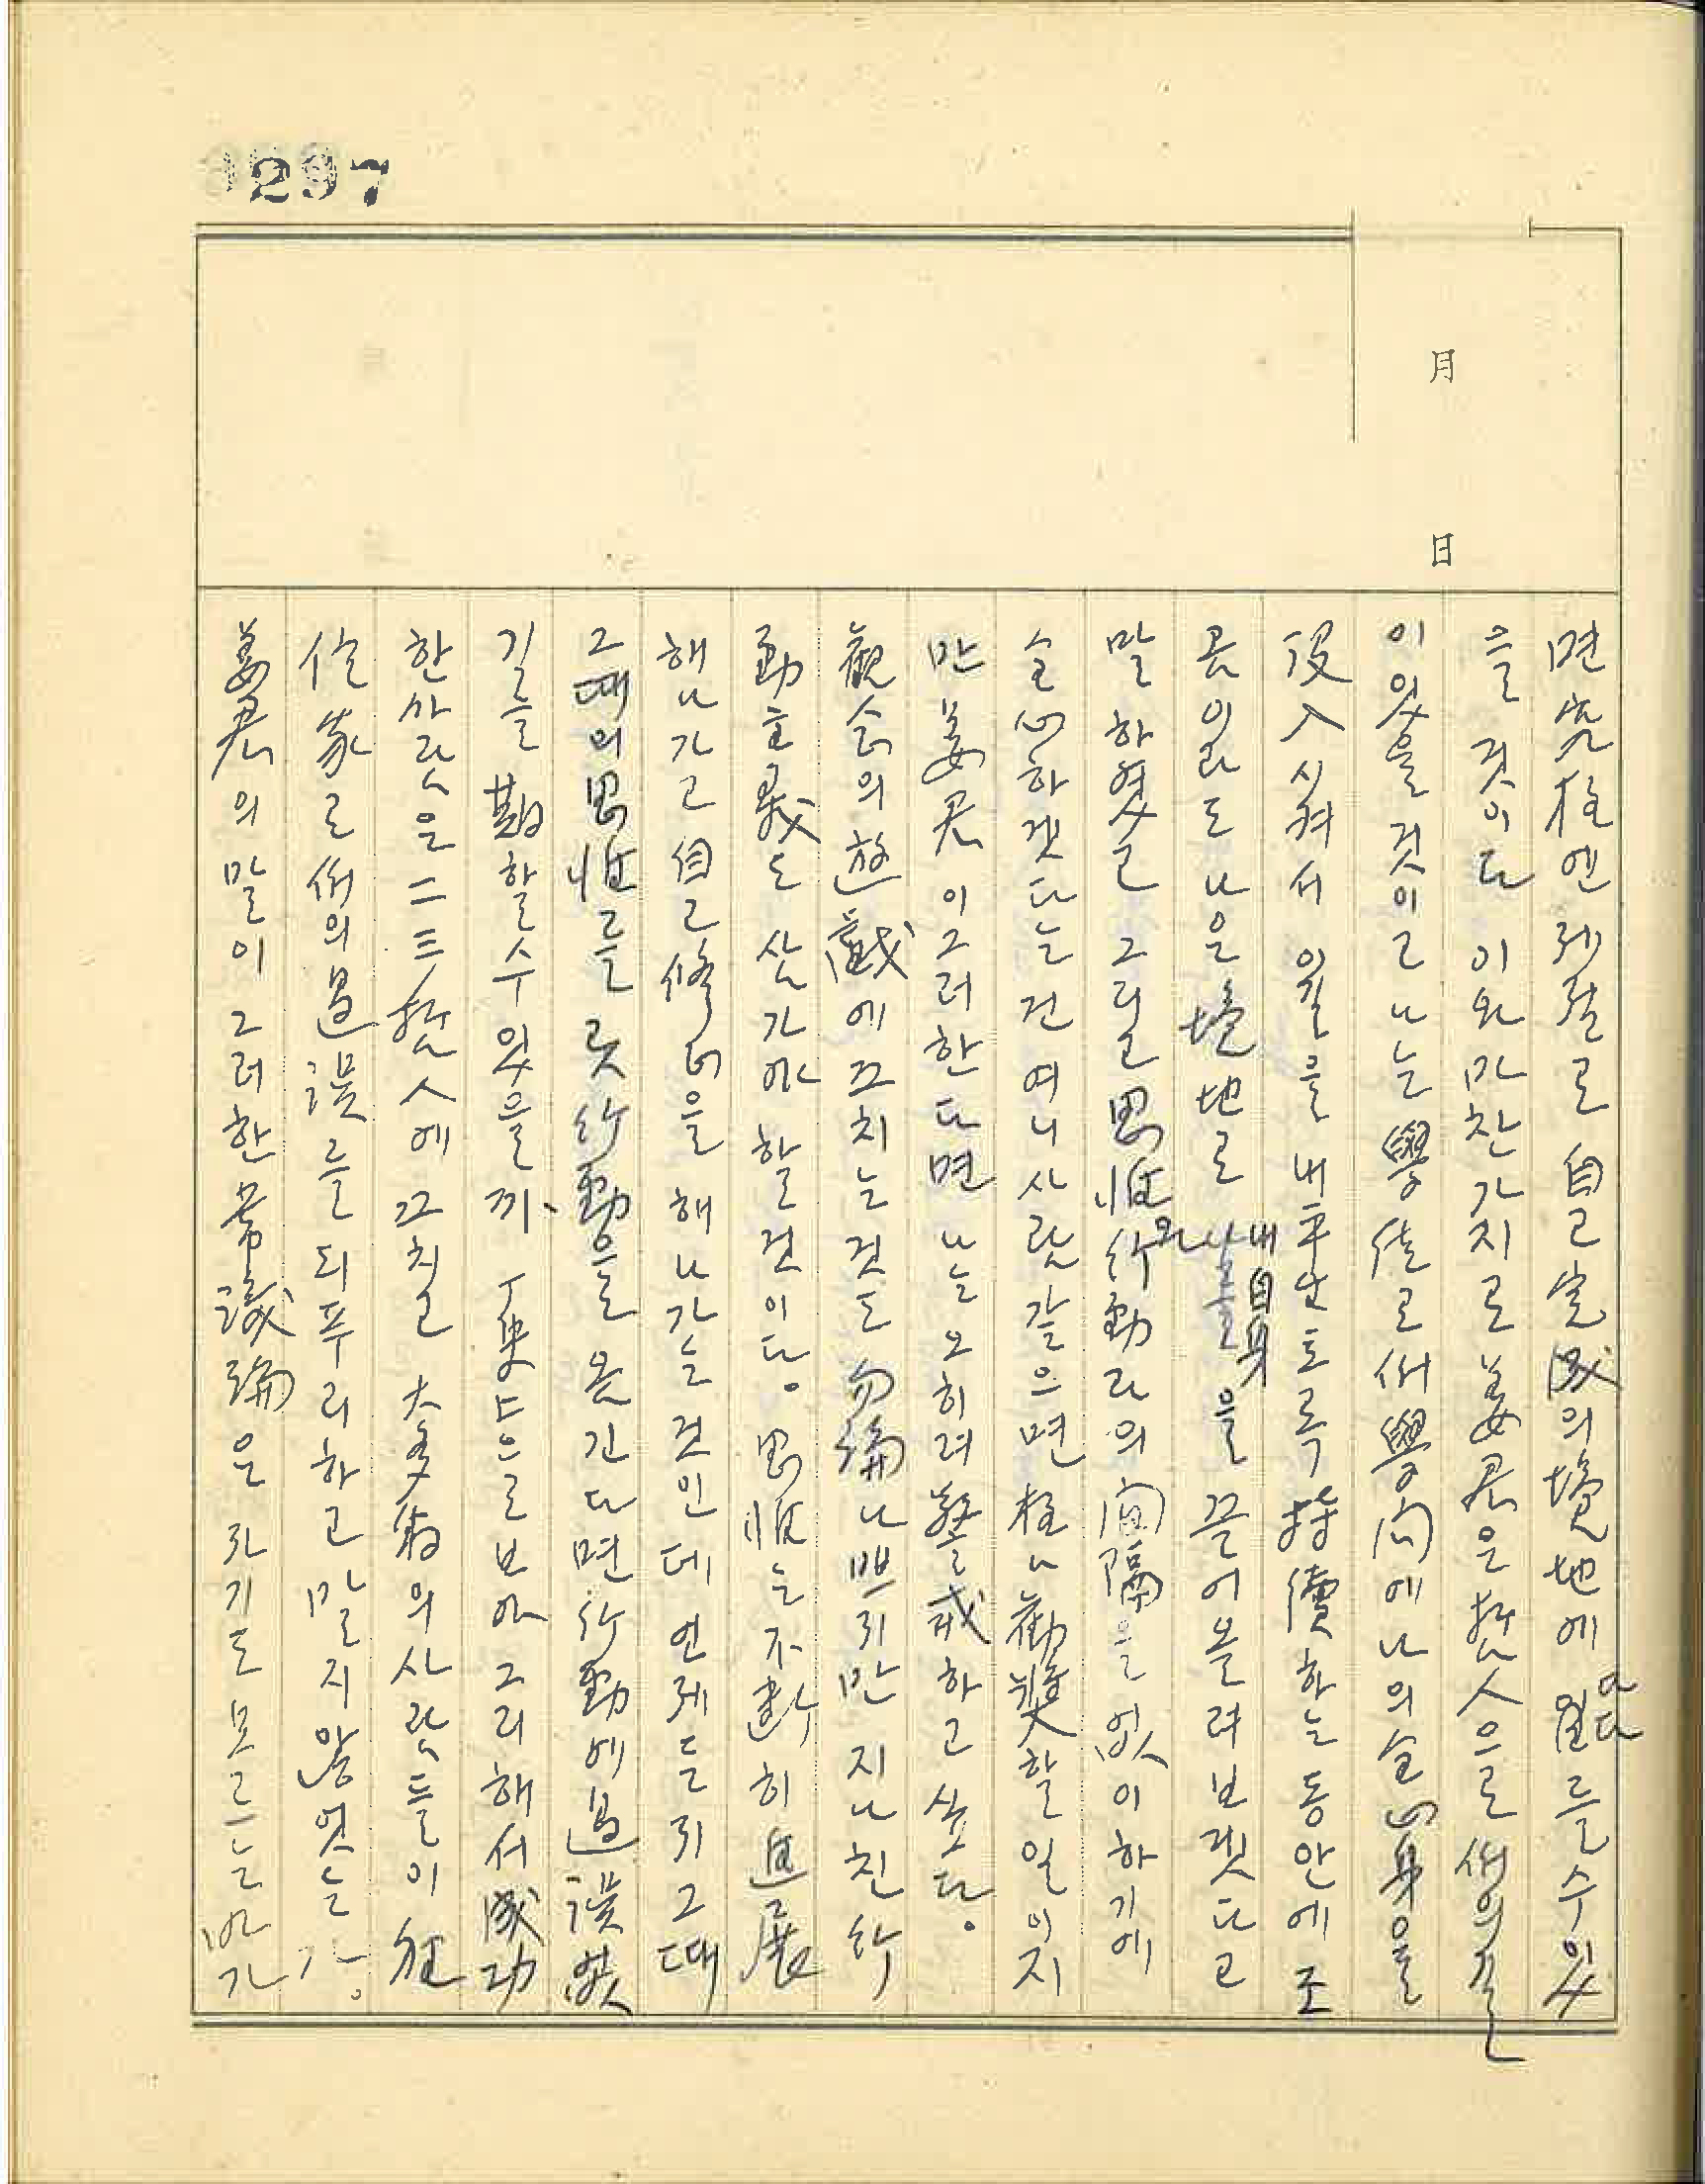 0297
月
日
면 究極엔 제절로 自己完成의 境地에 이를수잇
을 것이다 이와 마찬가지로 姜君은 哲人으로 街의길
이 잇을 것이고 나는 學徒로 街學問에 나의 全心身을
沒入식혀서 이길을 내 하도록 持續하는 동안에 조
곰이라도 나은 境地로 내自身을 끌어올려보겟다고
말하엿고 그리고 思惟와 行動과의 間隔을 없이하기에
全心하겟다는 건 여니사람같으면 極히 勸奬할 일이지
만 姜君이 그러한다면 나는 오히려 警戒하고 싶다.
觀念의 遊戱에 끄치는 것도 勿論 나쁘지만 지나친 行
動主義도 삼가야 할 것이다. 思惟는 不斷히 進展
해나가고 自己修正을 해나가는 것인데 언제든지 그때
그때의 思惟를 곳 行動을 옮긴다면 行動에 過誤없
길을 期할수 있을까. 史上으로 보아 그리해서 成功
한사람은 二三 哲人에 끄치고 大多數의 사람들이
作家로 街의 過誤를 되푸리하고 말지 않엇는가.
姜君의 말이 그러한 常識論은 라기도 모르는바가